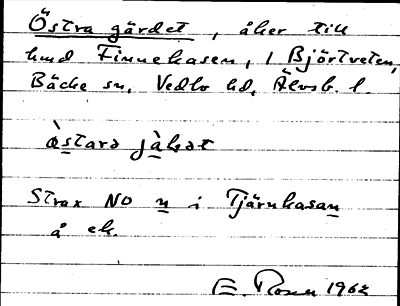 Östra gärdet, åker till
hmd Finnekasen, 1 Björtveten,
Bäcke sn, Vedbo hd, Älvsb. l.
Strax NO n i Tjärnkasan
å ek.
E. Rosén 1962